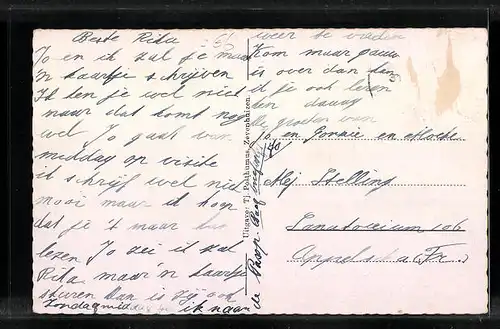 Beste Rita
Jo en ik zal je maar
'n kaartje schrijven
Ik ken je wel niet
maar dat komt nog
wel Jo gaat van
middag op visite
ik schrijf wel niet
mooi maar ik hoop
dat je 't maar kan
lezen Jo zei ik zal
Rita maar 'n kaartje
sturen dan is zij ook
Zondagmiddag ik naar
weer te vreden
Kom maar gauw
is over dan kan
ik je ook leren
ken
de groeten van
Jo en en Moeke
Mej Stelling
Sanatorium
Appelscha (Fr.)
Uitgave: Tj. Posthumus, Zevenhuizen